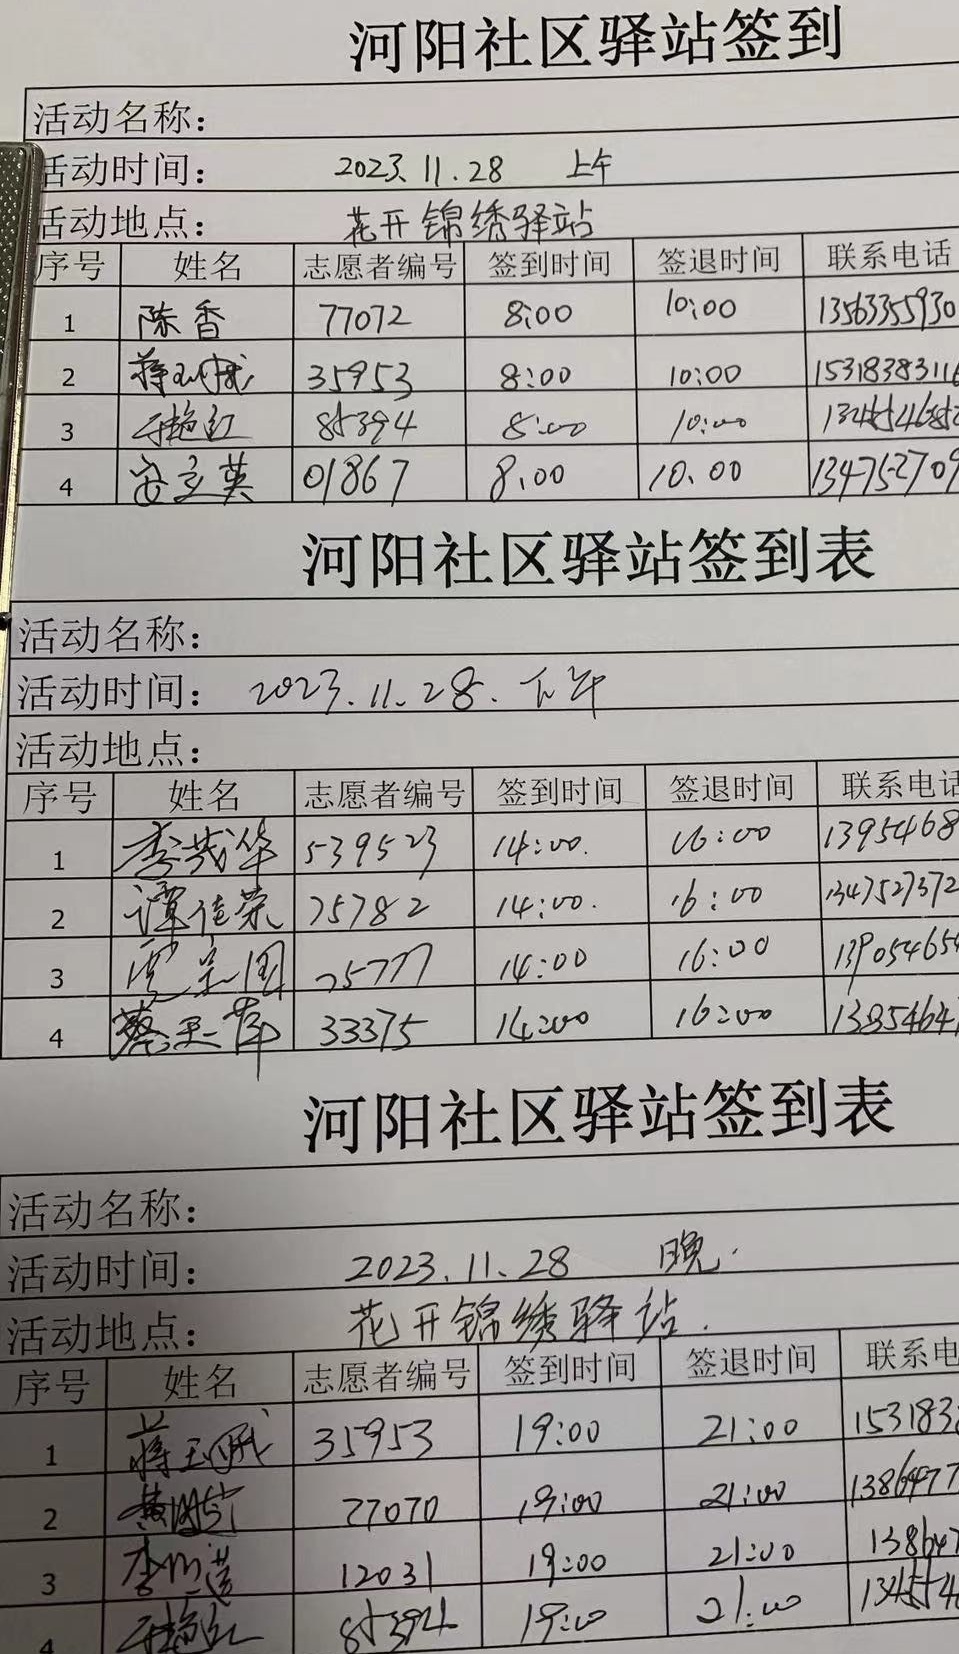 河阳社区驿站签到
活动名称：
活动时间： 2023.11.28 上午
活动地点： 花开锦绣驿站
序号 姓名 志愿者编号 签到时间 签退时间 联系电话
1 陈香 77072 8:00 10:00 13563355930
2 35953 8:00 10:00 15318383116
3 于艳红 85394 8:00 10:00
4 安立英 01867 8.00 10.00 134752709
河阳社区驿站签到表
活动名称：
活动时间： 2023.11.28. 下午
活动地点：
序号 姓名 志愿者编号 签到时间 签退时间 联系电话
1 李茂华 539523 14:00. 16:00 1395468
2 谭佳荣 75782 14:00. 16:00 1347527372
3 75777 14:00 16:00 139054654
4 33375 14:00 16:00
河阳社区驿站签到表
活动名称：
活动时间： 2023.11.28 晚.
活动地点： 花开锦绣驿站.
序号 姓名 志愿者编号 签到时间 签退时间 联系电
1 35953 19:00 21:00 153183
2 77070 19:00 21:00
3 12031 19:00 21:00 13864
4 于艳红 85394 19:00 21:00